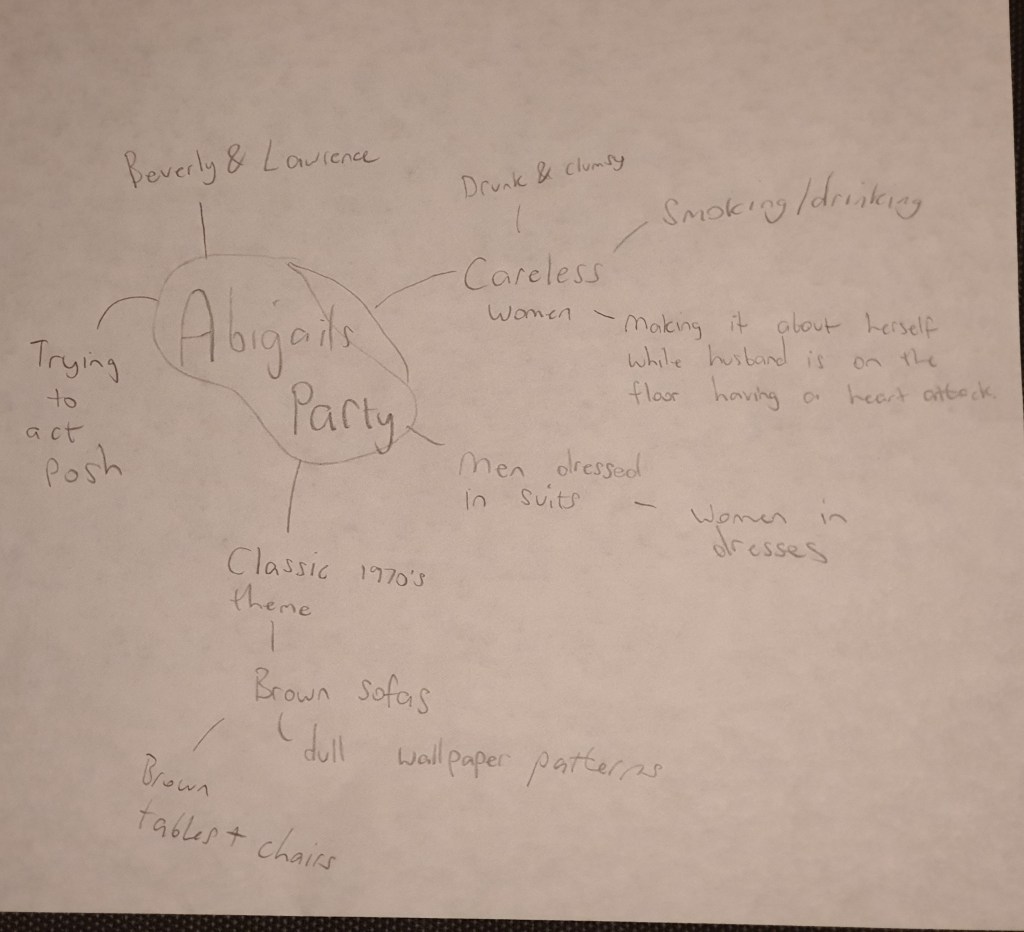 Beverly & Lawrence
Drunk & clumsy
Smoking/drinking
Careless
women
Making it about herself
while husband is on the
floor having a heart attack.
Abigails
Party
Trying
to
act
Posh
Men dressed
in suits
Women in
dresses
Classic 1970's
theme
Brown sofas
dull wallpaper patterns
Brown
tables + chairs